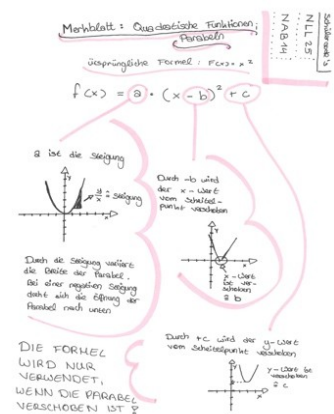 Merkblatt: Quadratische Funktionen;
Parabeln
Schülercode's
NLL 25
NAB 14
ursprüngliche Formel: F(x) = x²
f(x) = a · (x - b)² + c
a ist die Steigung
y
y/x = Steigung
x
Durch die Steigung variiert
die Breite der Parabel.
Bei einer negativen Steigung
dreht sich die Öffnung der
Parabel nach unten
Durch -b wird
der x-Wert
vom Scheitel-
punkt verschoben
x-Wert
ist ver-
schoben
a b
Durch +c wird der y-Wert
vom Scheitelpunkt verschoben
y-Wert ist
verschoben
a c
DIE FORMEL
WIRD NUR
VERWENDET,
WENN DIE PARABEL
VERSCHOBEN IST!